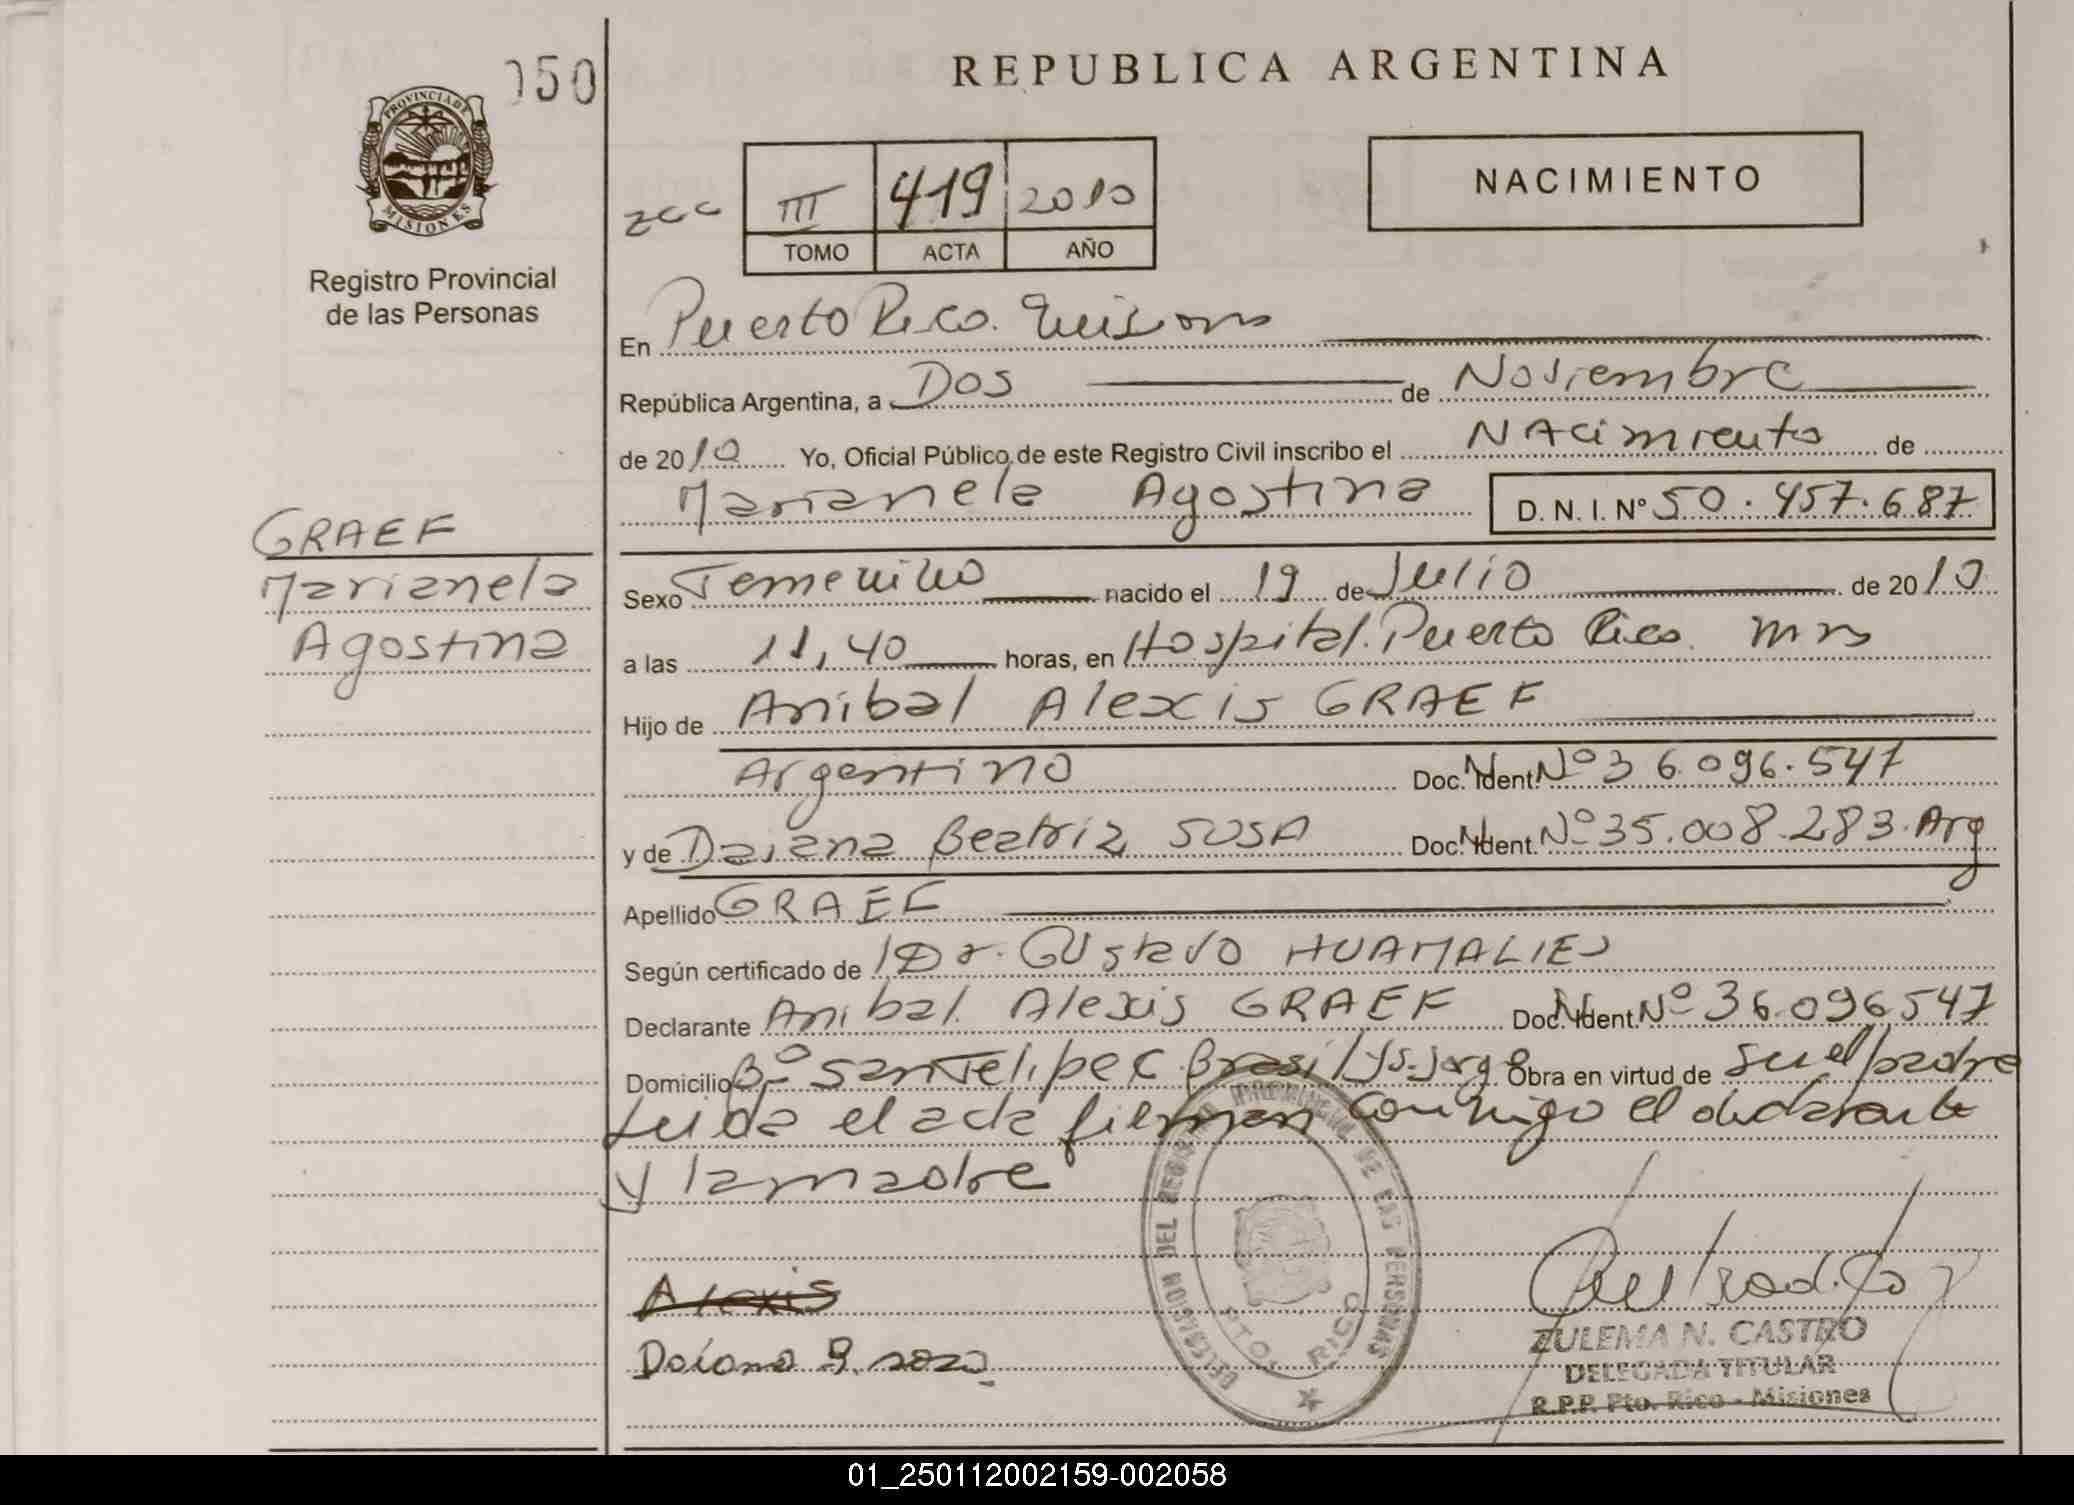 150
REPUBLICA ARGENTINA
PROVINCIA DE
MISIONES
Registro Provincial
de las Personas
NACIMIENTO
zcc III 419 2010
TOMO ACTA AÑO
En Puerto Rico. Misiones
República Argentina, a Dos de Noviembre
de 2010 Yo, Oficial Público de este Registro Civil inscribo el NAcimiento de
Marianela Agostina D. N. I. Nº 50.457.687
GRAEF
Marianela
Agostina
Sexo Femenino nacido el 19 de Julio de 2010
a las 11,40 horas, en Hospital. Puerto Rico. mns
Hijo de Anibal Alexis GRAEF
Argentino Doc. Ident. Nº 36.096.547
y de Daiana Beatriz SOSA Doc. Ident. Nº 35.008.283. Arg
Apellido GRAEF
Según certificado de Dr. Gustavo HUAMALIES
Declarante Anibal Alexis GRAEF Doc. Ident. Nº 36.096547
Domicilio Bº San Felipe c. Brasil y S. Jorge Obra en virtud de ser el padre
Leida el acta firman conmigo el declarante
y la madre
DELEGACION DEL REGISTRO PROVINCIAL DE LAS PERSONAS
PTO. RICO
Alexis
Daiana B. sosa
ZULEMA N. CASTRO
DELEGADA TITULAR
R.P.P. Pto. Rico - Misiones
01_250112002159-002058